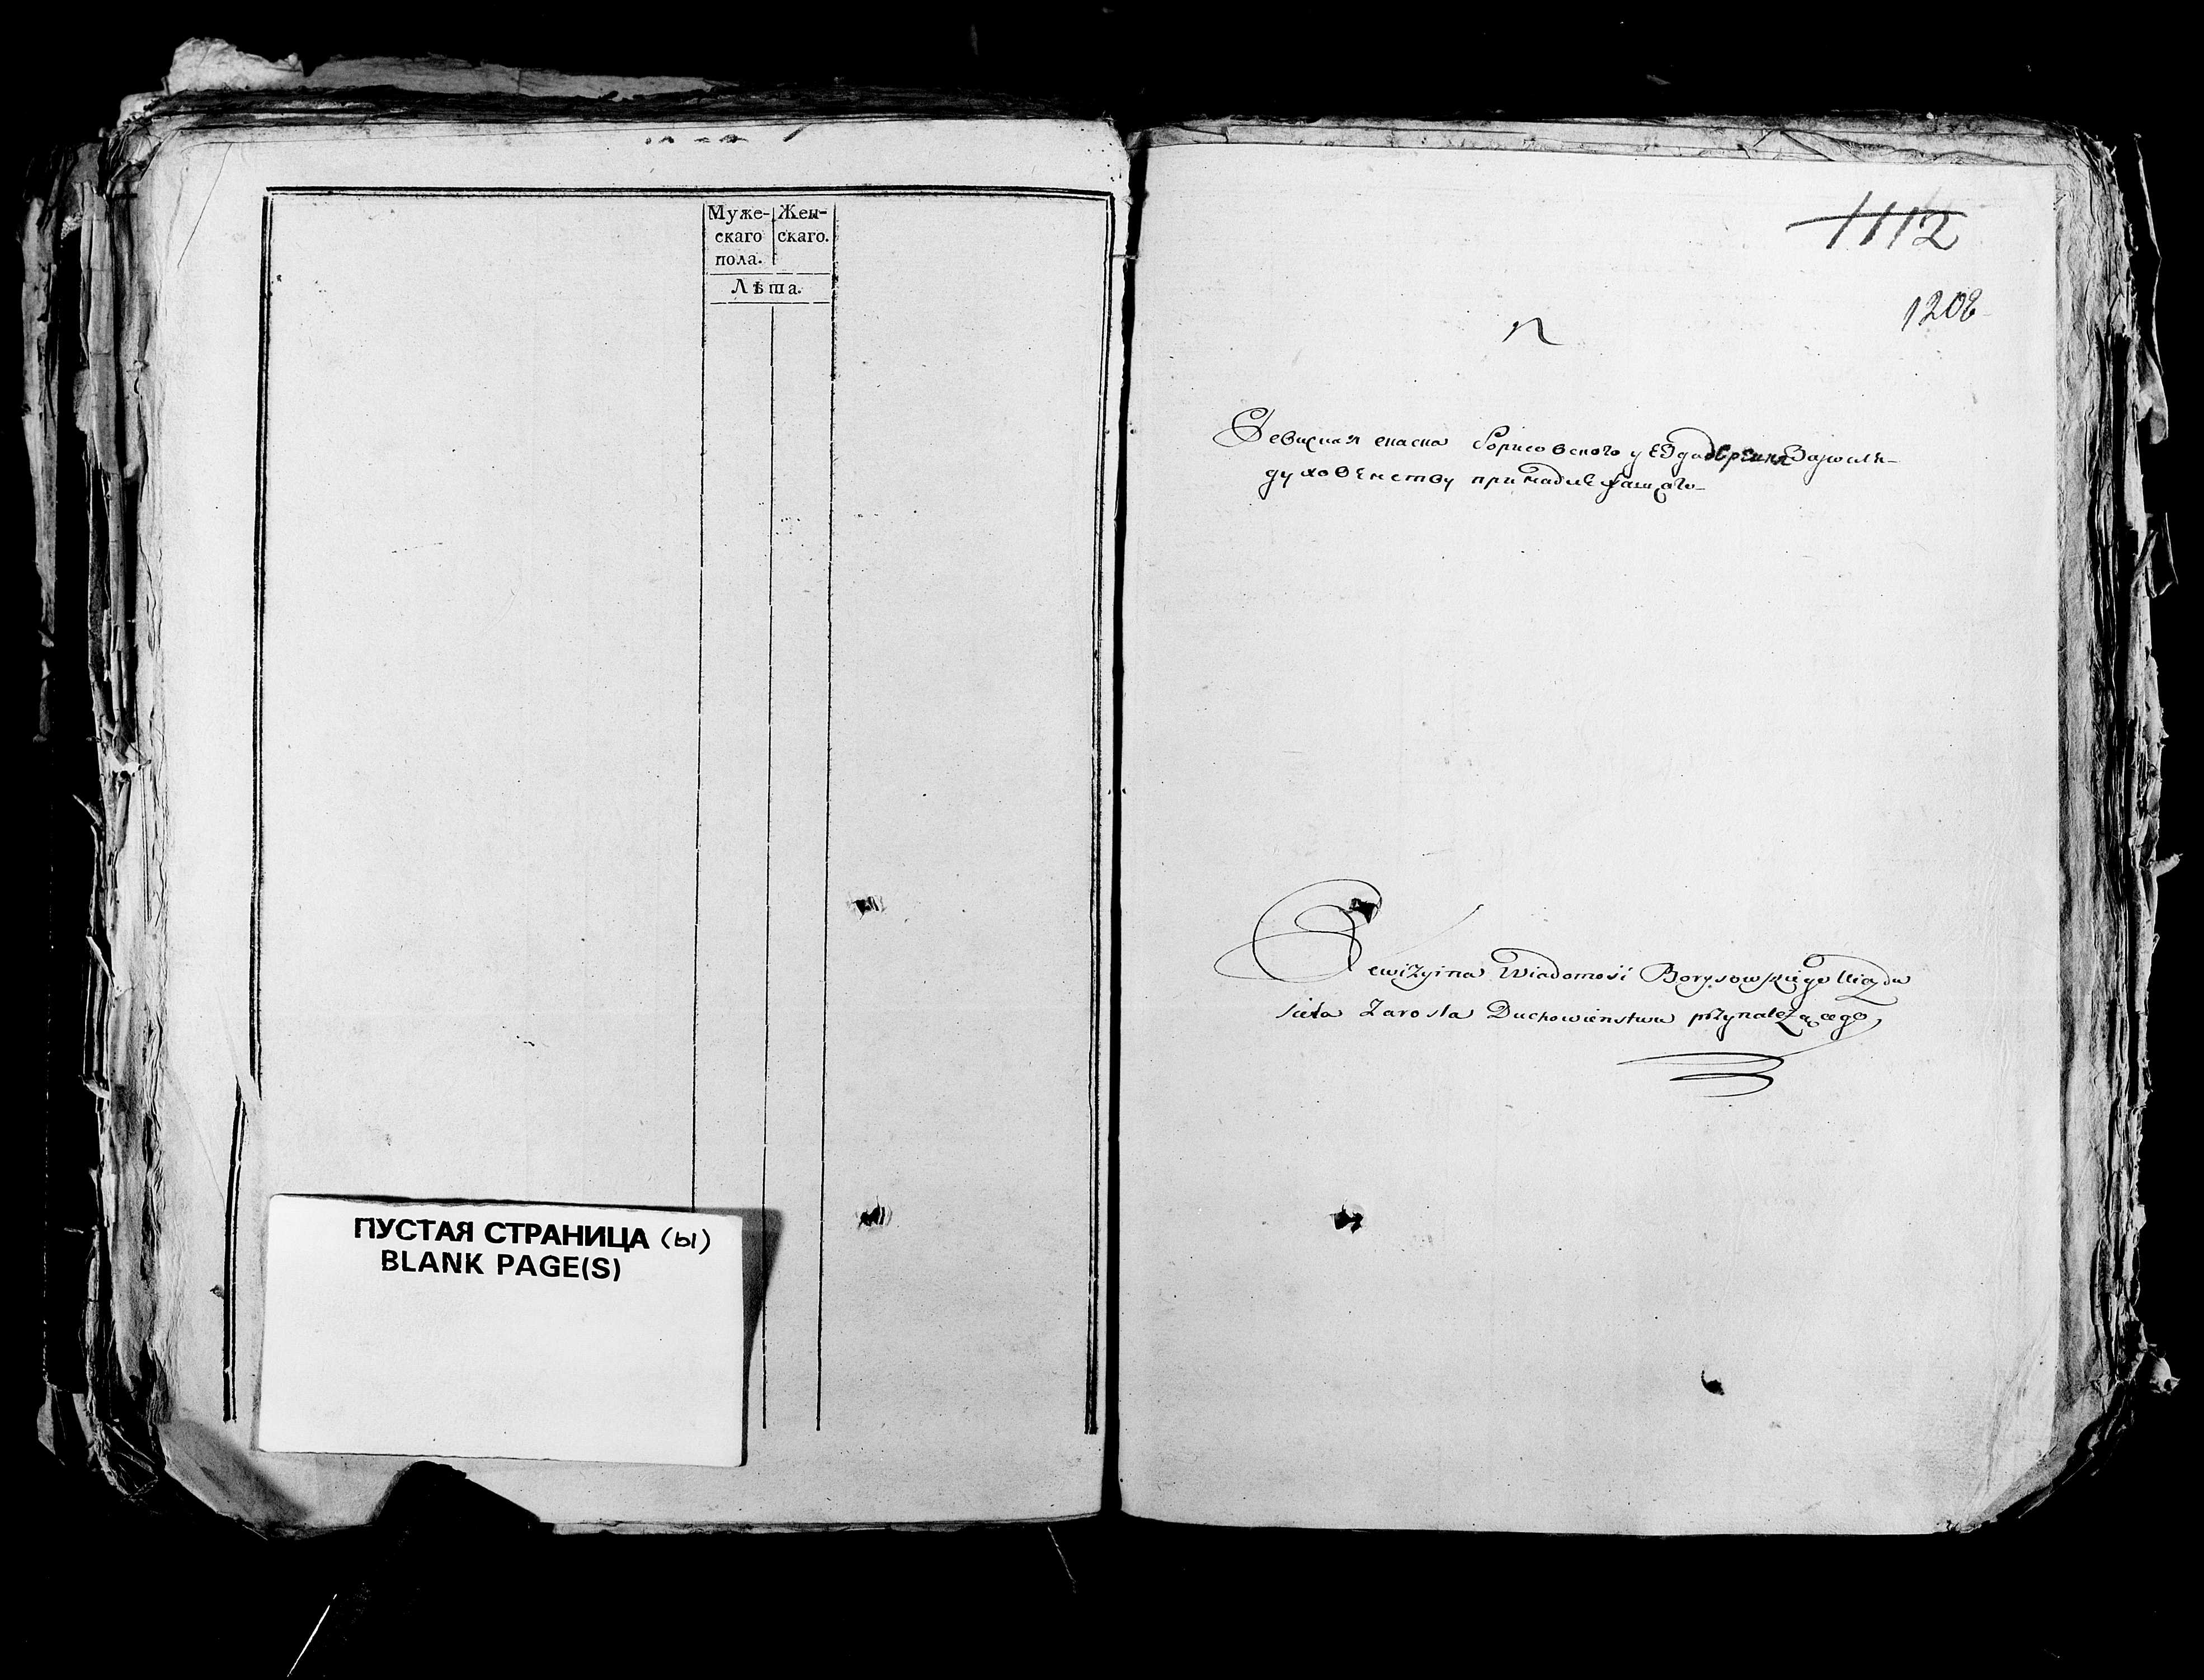 Муже- Жен-
скаго скаго.
пола.
Лѣта.
ПУСТАЯ СТРАНИЦА (ы)
BLANK PAGE(S)
1112
1208
Ревизская сказка Борисовского уезда
духовенству принадлежащаго
Rewizyina Wiadomość Borysowskiego Uiazdu
sioła Zarosla Duchowienstwu przynależącego